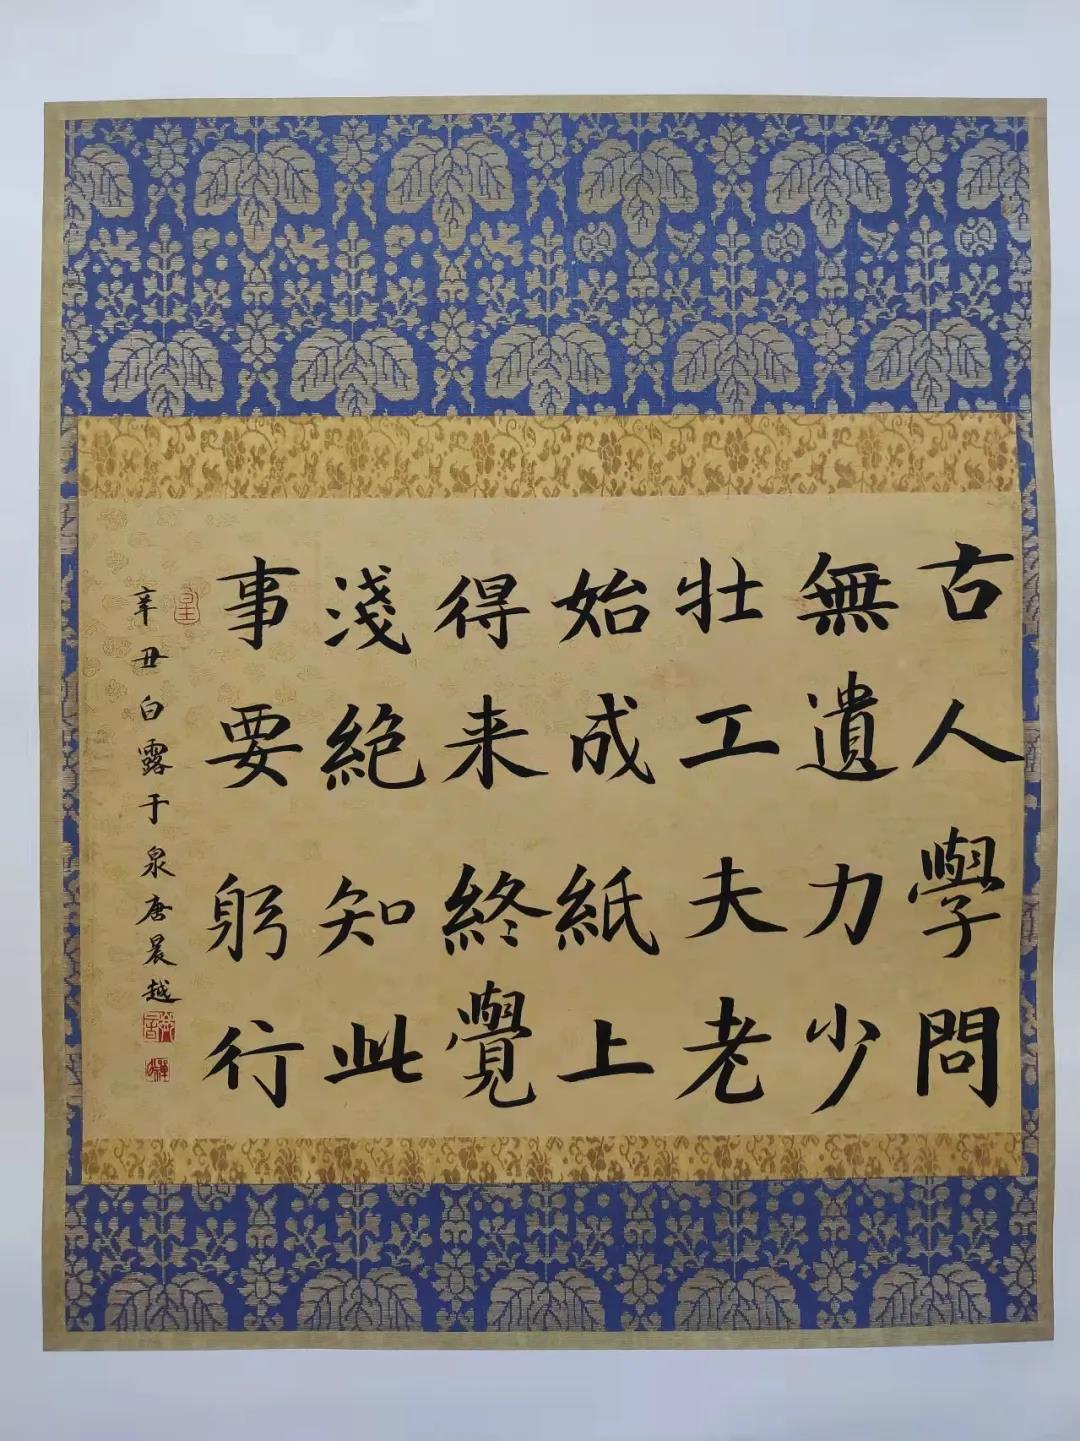 古人學問
無遺力少
壯工夫老
始成紙上
得来終覺
淺絕知此
事要躬行
辛丑白露于泉唐晨越